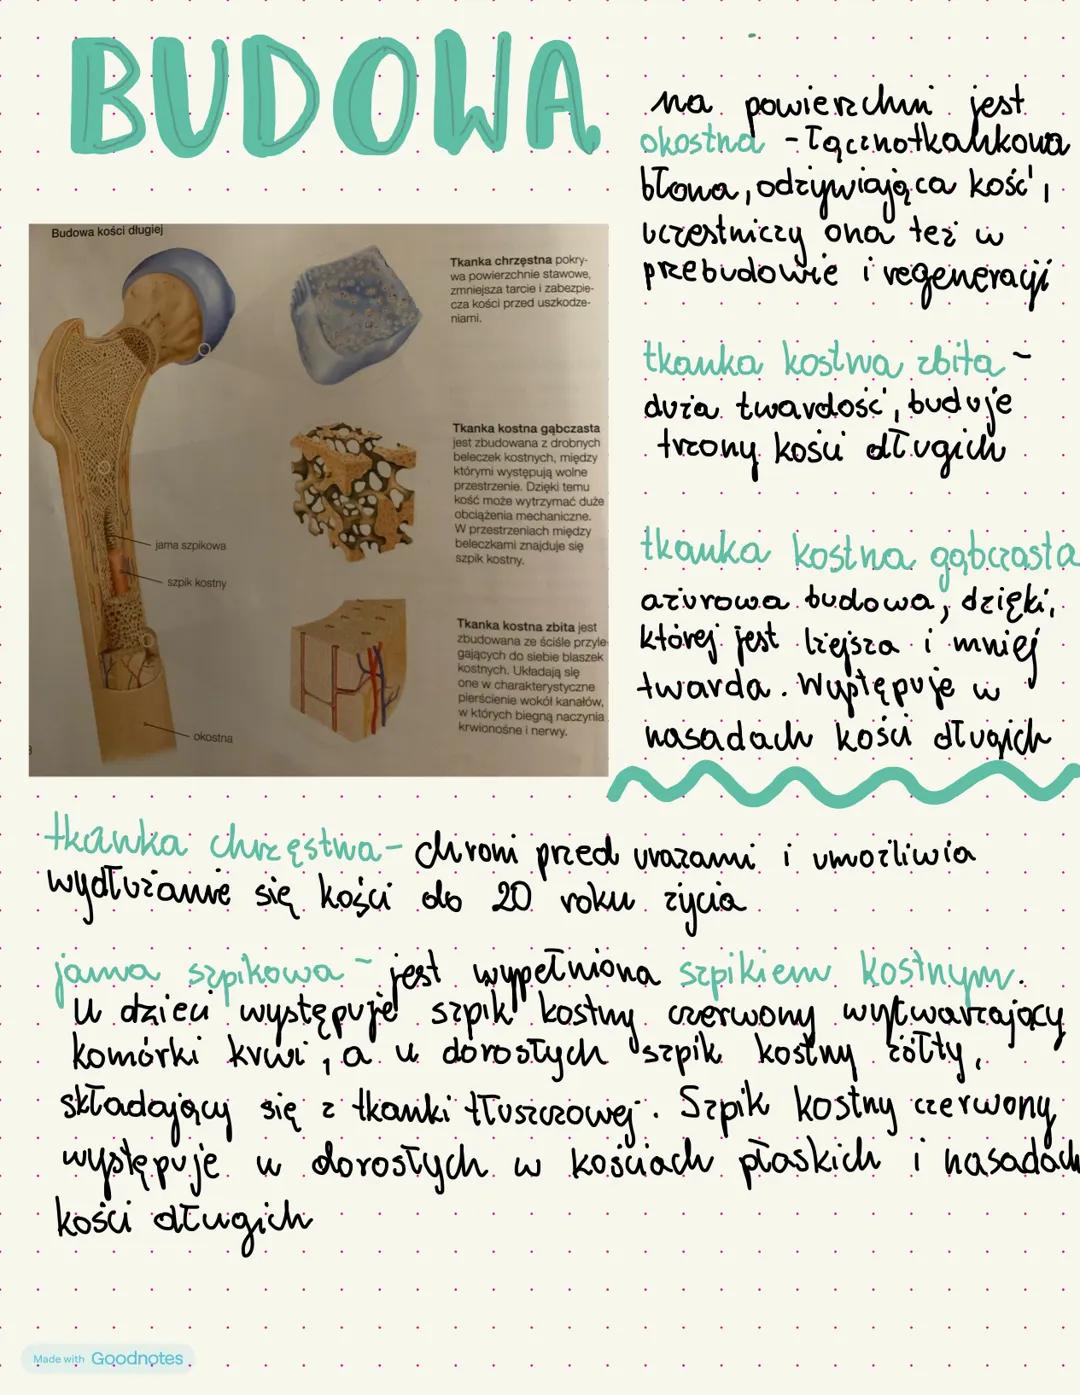 BUDOWA
na powierzchni jest
okostna - łącznotkankowa
błona, odżywiająca kość,
uczestniczy ona też w
przebudowie i regeneracji
Budowa kości długiej
Tkanka chrzęstna pokry-
wa powierzchnie stawowe,
zmniejsza tarcie i zabezpie-
cza kości przed uszkodze-
niami.
Tkanka kostna gąbczasta
jest zbudowana z drobnych
beleczek kostnych, między
którymi występują wolne
przestrzenie. Dzięki temu
kość może wytrzymać duże
obciążenia mechaniczne.
W przestrzeniach między
beleczkami znajduje się
szpik kostny.
jama szpikowa
szpik kostny
Tkanka kostna zbita jest
zbudowana ze ściśle przyle-
gających do siebie blaszek
kostnych. Układają się
one w charakterystyczne
pierścienie wokół kanałów,
w których biegną naczynia
krwionośne i nerwy.
okostna
tkanka kostna zbita -
duża twardość, buduje
trzony kości długich
tkanka kostna gąbczasta
ażurowa budowa, dzięki,
której jest lżejsza i mniej
twarda. Występuje w
nasadach kości długich
tkanka chrzęstna - chroni przed urazami i umożliwia
wydłużanie się kości do 20 roku życia
jama szpikowa - jest wypełniona szpikiem kostnym.
U dzieci występuje szpik kostny czerwony wytwarzający
komórki krwi, a u dorosłych szpik kostny żółty,
składający się z tkanki tłuszczowej. Szpik kostny czerwony
występuje u dorosłych w kościach płaskich i nasadach
kości długich
Made with Goodnotes